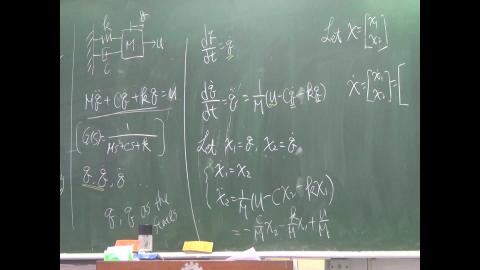 k
q
M
u
c
Mq̈ + Cq̇ + kq = u
(G(s) = 1/(Ms²+Cs+k))
q, q̇, q̈
q, q̇ as the
dq/dt = q̇
dq̇/dt = q̈ = 1/M (u - Cq̇ - kq)
Let x₁ = q, x₂ = q̇
ẋ₁ = x₂
ẋ₂ = 1/M (u - Cx₂ - kx₁)
= - C/M x₂ - k/M x₁ + u/M
Let x = [x₁ x₂]
ẋ = [ẋ₁ ẋ₂] = [